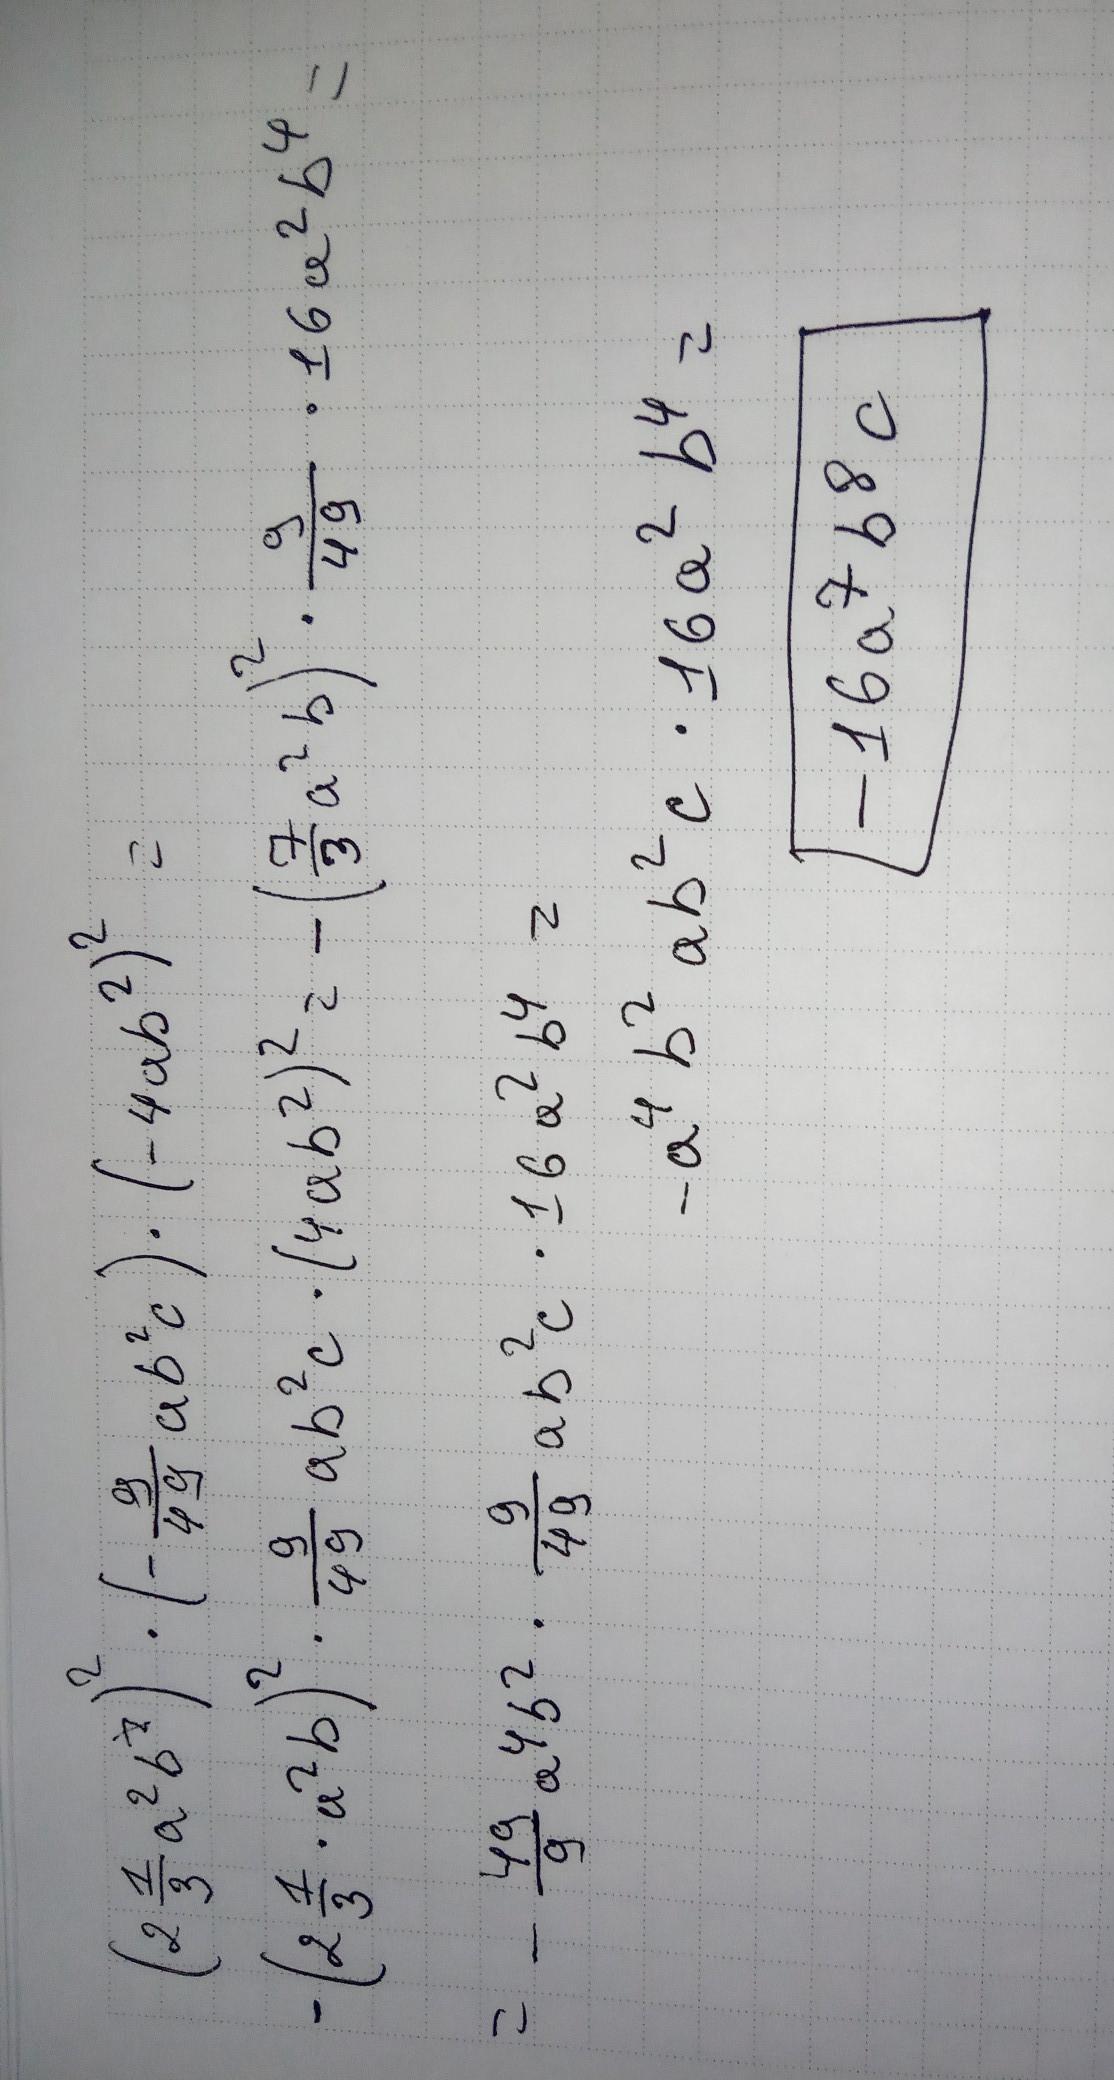 (2 1/3 a²b)² · (- 9/49 ab²c) · (-4ab²)² =
-(2 1/3 · a²b)² · 9/49 ab²c · (4ab²)² = -(7/3 a²b)² · 9/49 · 16a²b⁴ =
= - 49/9 a⁴b² · 9/49 ab²c · 16a²b⁴ =
-a⁴b² ab²c · 16a²b⁴ =
-16a⁷b⁸c